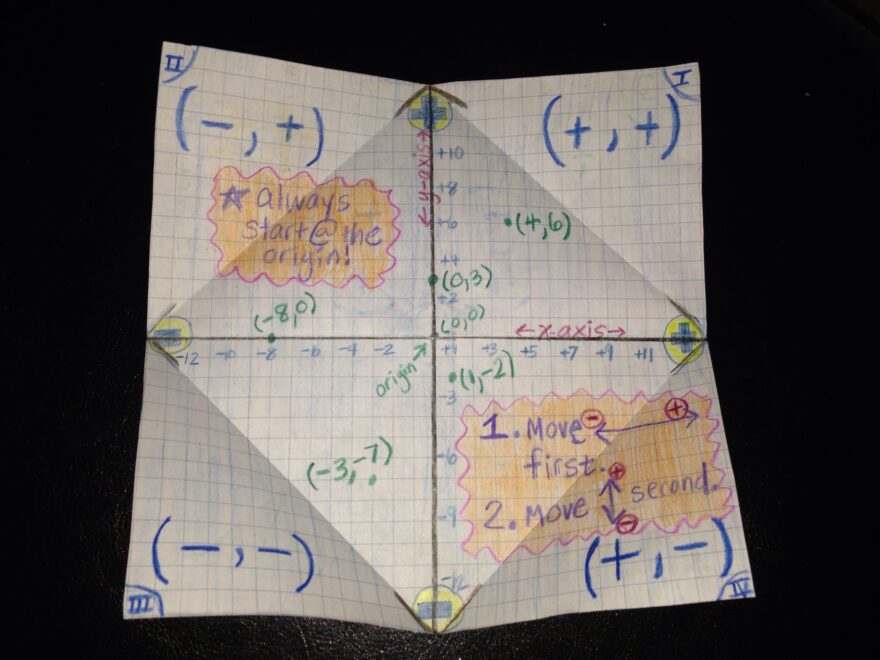 II
I
(-, +)
(+, +)
+
y-axis
+10
+8
+6
+4
+2
★ Always
start @ the
origin!
(4,6)
(0,3)
(-8,0)
(0,0)
x-axis
-
-12 -10 -8 -6 -4 -2
+1 +3 +5 +7 +9 +11
+
origin
(1,-2)
-3
-6
-9
-12
(-3,-7)
1. Move - +
first.
2. Move + - second.
(-, -)
(+, -)
III
-
IV